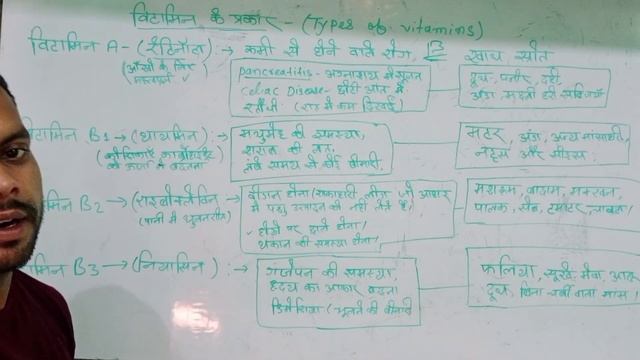 विटामिन के प्रकार - (Types of vitamins)
विटामिन A - (रेटिनॉल) :→ कमी से होने वाले रोग, खाद्य स्रोत
(आँखों के लिए
pancreatitis - अग्नाशय में सूजन
celiac Disease - छोटी आंत में
रतौंधी (रात में कम दिखाई)
दूध, पनीर, दही
अंडा, मछली हरी सब्जियाँ
विटामिन B1 → (थायमिन) :→
मधुमेह की समस्या,
शराब की लत,
लंबे समय से कोई बीमारी,
मटर, अंडा, अन्य मांसाहारी,
नट्स और सीड्स,
मिन B2 → (राइबोफ्लेविन
(पानी में घुलनशील)
वीगन होना (शाकाहारी लोग, जो आहार
में पशु उत्पादन को नहीं लेते है,
होंठो पर छाले होना,
थकान की समस्या होना,
मशरूम, बादाम, मक्खन,
पालक, सेब, टमाटर, चावल,
मिन B3 → (नियासिन) :→
गंजेपन की समस्या,
हृदय का आकार बढ़ना
डिमेंशिया (भूलने की बीमारी
फलिया, सूखे मेवा, आलू
दूध, बिना चर्बी वाला मांस,